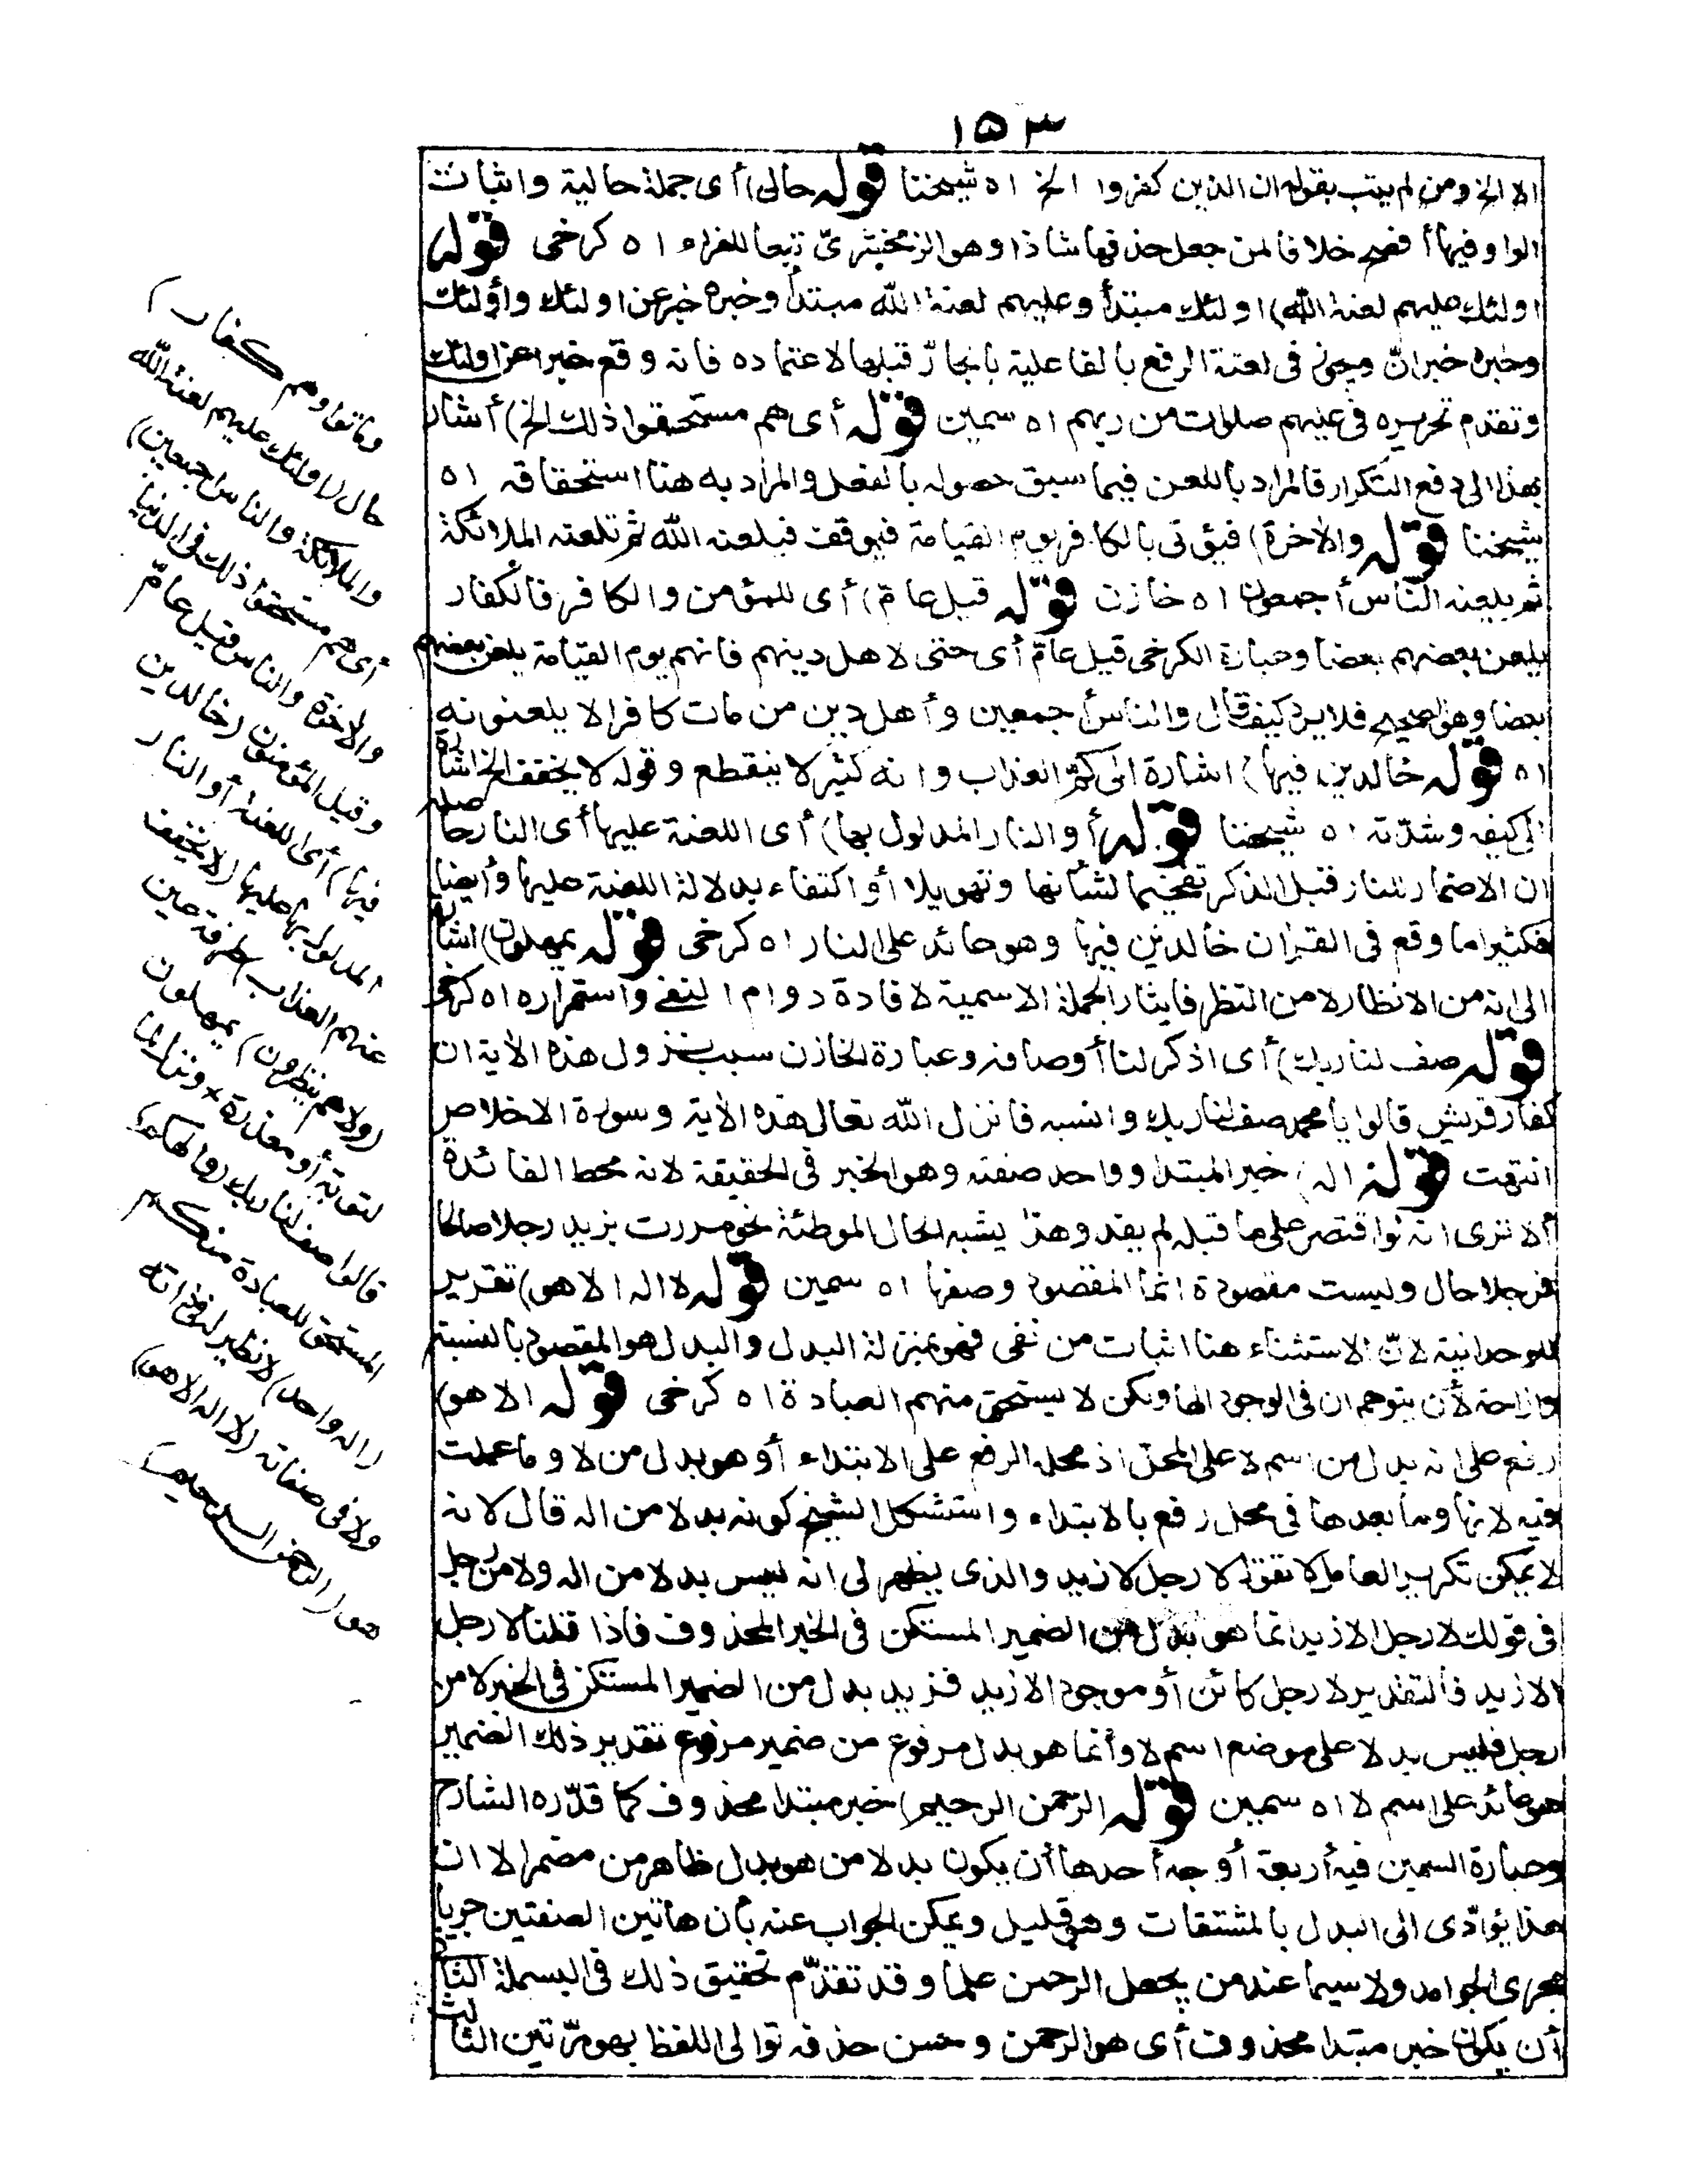 ١٥٣
الا الخ ومن لم يتب بقوله ان الذين كفروا الخ اه شيخنا قوله حالى) أى جملة حالية واثبات
الواو فيها أفصح خلافا لمن جعل حذفها شاذا وهو الزمخشرىّ تبعا للفراء اه كرخى قوله
اولئك عليهم لعنة الله) اولئك مبتدأ وعليهم لعنة الله مبتدأ وخبره خبر عن اولئك وأولئك
وخبره خبر انّ ويجوز فى لعنة الرفع بالفاعلية بالجارّ قبلها لاعتماده فانه وقع خبرا عن اولئك
وتقدم تحريره فى عليهم صلوات من ربهم اه سمين قوله أى هم مستحقوا ذلك الخ) أشار
بهذا الى دفع التكرار فالمراد باللعن فيما سبق حصوله بالفعل والمراد به هنا استحقاقه اه
شيخنا قوله والاخرة) فيؤتى بالكافر يوم القيامة فيوقف فيلعنه الله ثم تلعنه الملائكة
ثم يلعنه النّاس أجمعون اه خازن قوله قيل عامّ) أى للمؤمن والكافر فالكفار
يلعن بعضهم بعضا وعبارة الكرخى قيل عامّ أى حتى لاهل دينهم فانهم يوم القيامة يلعن بعضهم
بعضا وهو الصحيح فلا يرد كيف قال والناس أجمعين وأهل دين من مات كافرا لا يلعنونه
اه قوله خالدين فيها) اشارة الى كمّ العذاب وانه كثير لا ينقطع وقوله لا يخفف الخ اشارة
الى كيفه وشدّته اه شيخنا قوله أو النار المدلول بها) أى اللعنة عليها أى النار حاصله
ان الاضمار للنار قبل الذكر تفخيما لشأنها وتهويلا أو اكتفاء بدلالة اللعنة عليها وأيضا
فكثيرا ما وقع فى القران خالدين فيها وهو عائد على النار اه كرخى قوله يمهلون) اشار
الى انه من الانظار لا من النظر فايثار الجملة الاسمية لافادة دوام النفى واستمراره اه كرخى
قوله صف لنا ربك) أى اذكر لنا أوصافه وعبارة الخازن سبب نزول هذه الأية ان
كفار قريش قالوا يا محمد صف لنا ربك وانسبه فانزل الله تعالى هذه الأية وسورة الاخلاص
انتهت قوله اله) خبر المبتدا وواحد صفته وهو الخبر فى الحقيقة لانه محط الفائدة
ألا ترى انه لو اقتصر على ما قبله لم يفد وهذا يشبه الحال الموطئة نحو مررت بزيد رجلا صالحا
فرجلا حال وليست مقصودة انما المقصود وصفها اه سمين قوله لا اله الا هو) تقرير
للوحدانية لانّ الاستثناء هنا اثبات من نفى فهو بمنزلة البدل والبدل هو المقصود بالنسبة
وازاحة لأن يتوهم ان فى الوجود الها ولكن لا يستحق منهم العبادة اه كرخى قوله الا هو)
رفع على انه بدل من اسم لا على المحل اذ محله الرفع على الابتداء أو هو بدل من لا وما عملت
فيه لانها وما بعدها فى محل رفع بالابتداء واستشكل الشيخ كونه بدلا من اله قال لانه
لا يمكن تكرير العامل لا تقول لا رجل لا زيد والذى يظهر لى انه ليس بدلا من اله ولا من رجل
فى قولك لا رجل الا زيد انما هو بدل من الضمير المستكن فى الخبر المحذوف فاذا قلنا لا رجل
الا زيد فالتقدير لا رجل كائن أو موجود الا زيد فزيد بدل من الضمير المستكن فى الخبر لا من
رجل فليس بدلا على موضع اسم لا وأنما هو بدل مرفوع من ضمير مرفوع تقدير ذلك الضمير
هو عائد على اسم لا اه سمين قوله الرحمن الرحيم) خبر مبتدا محذوف كما قدّره الشارح
وعبارة السمين فيه أربعة أوجه أحدها أن يكون بدلا من هو بدل ظاهر من مضمر الا ان
هذا يؤدّى الى البدل بالمشتقات وهو قليل ويمكن الجواب عنه بأن هاتين الصفتين جريا
مجرى الجوامد ولا سيما عند من يجعل الرحمن علما وقد تقدّم تحقيق ذلك فى البسملة الثانى
أن يكون خبر مبتدا محذوف أى هو الرحمن وحسن حذفه توالى اللفظ بهو مرّتين الثالث
وماتوا وهم كفار)
حال (اولئك عليهم لعنة الله
والملائكة والناس اجمعين)
أى هم مستحقوا ذلك فى الدنيا
والاخرة والناس قيل عامّ
وقيل المؤمنون (خالدين
فيها) أى اللعنة أو النار
المدلول بها عليها (لا يخفف
عنهم العذاب) طرفة عين
(ولا هم ينظرون) يمهلون
لتوبة أو معذرة * ونزل لما
قالوا صف لنا ربك (والهكم)
المستحق للعبادة منكم
(اله واحد) لا نظير له فى ذاته
ولا فى صفاته (لا اله الا هو)
هو (الرحمن الرحيم)